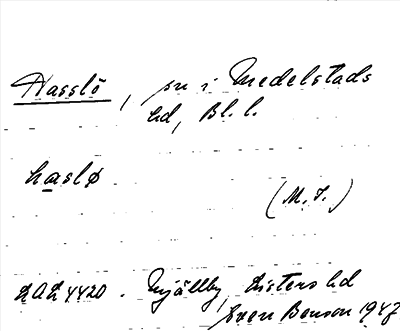 Hasslö, sn i Medelstads
hd, Bl. l.
haslø
(M. T.)
LAL 4420. Mjällby, Listers hd
Sven Benson 1947